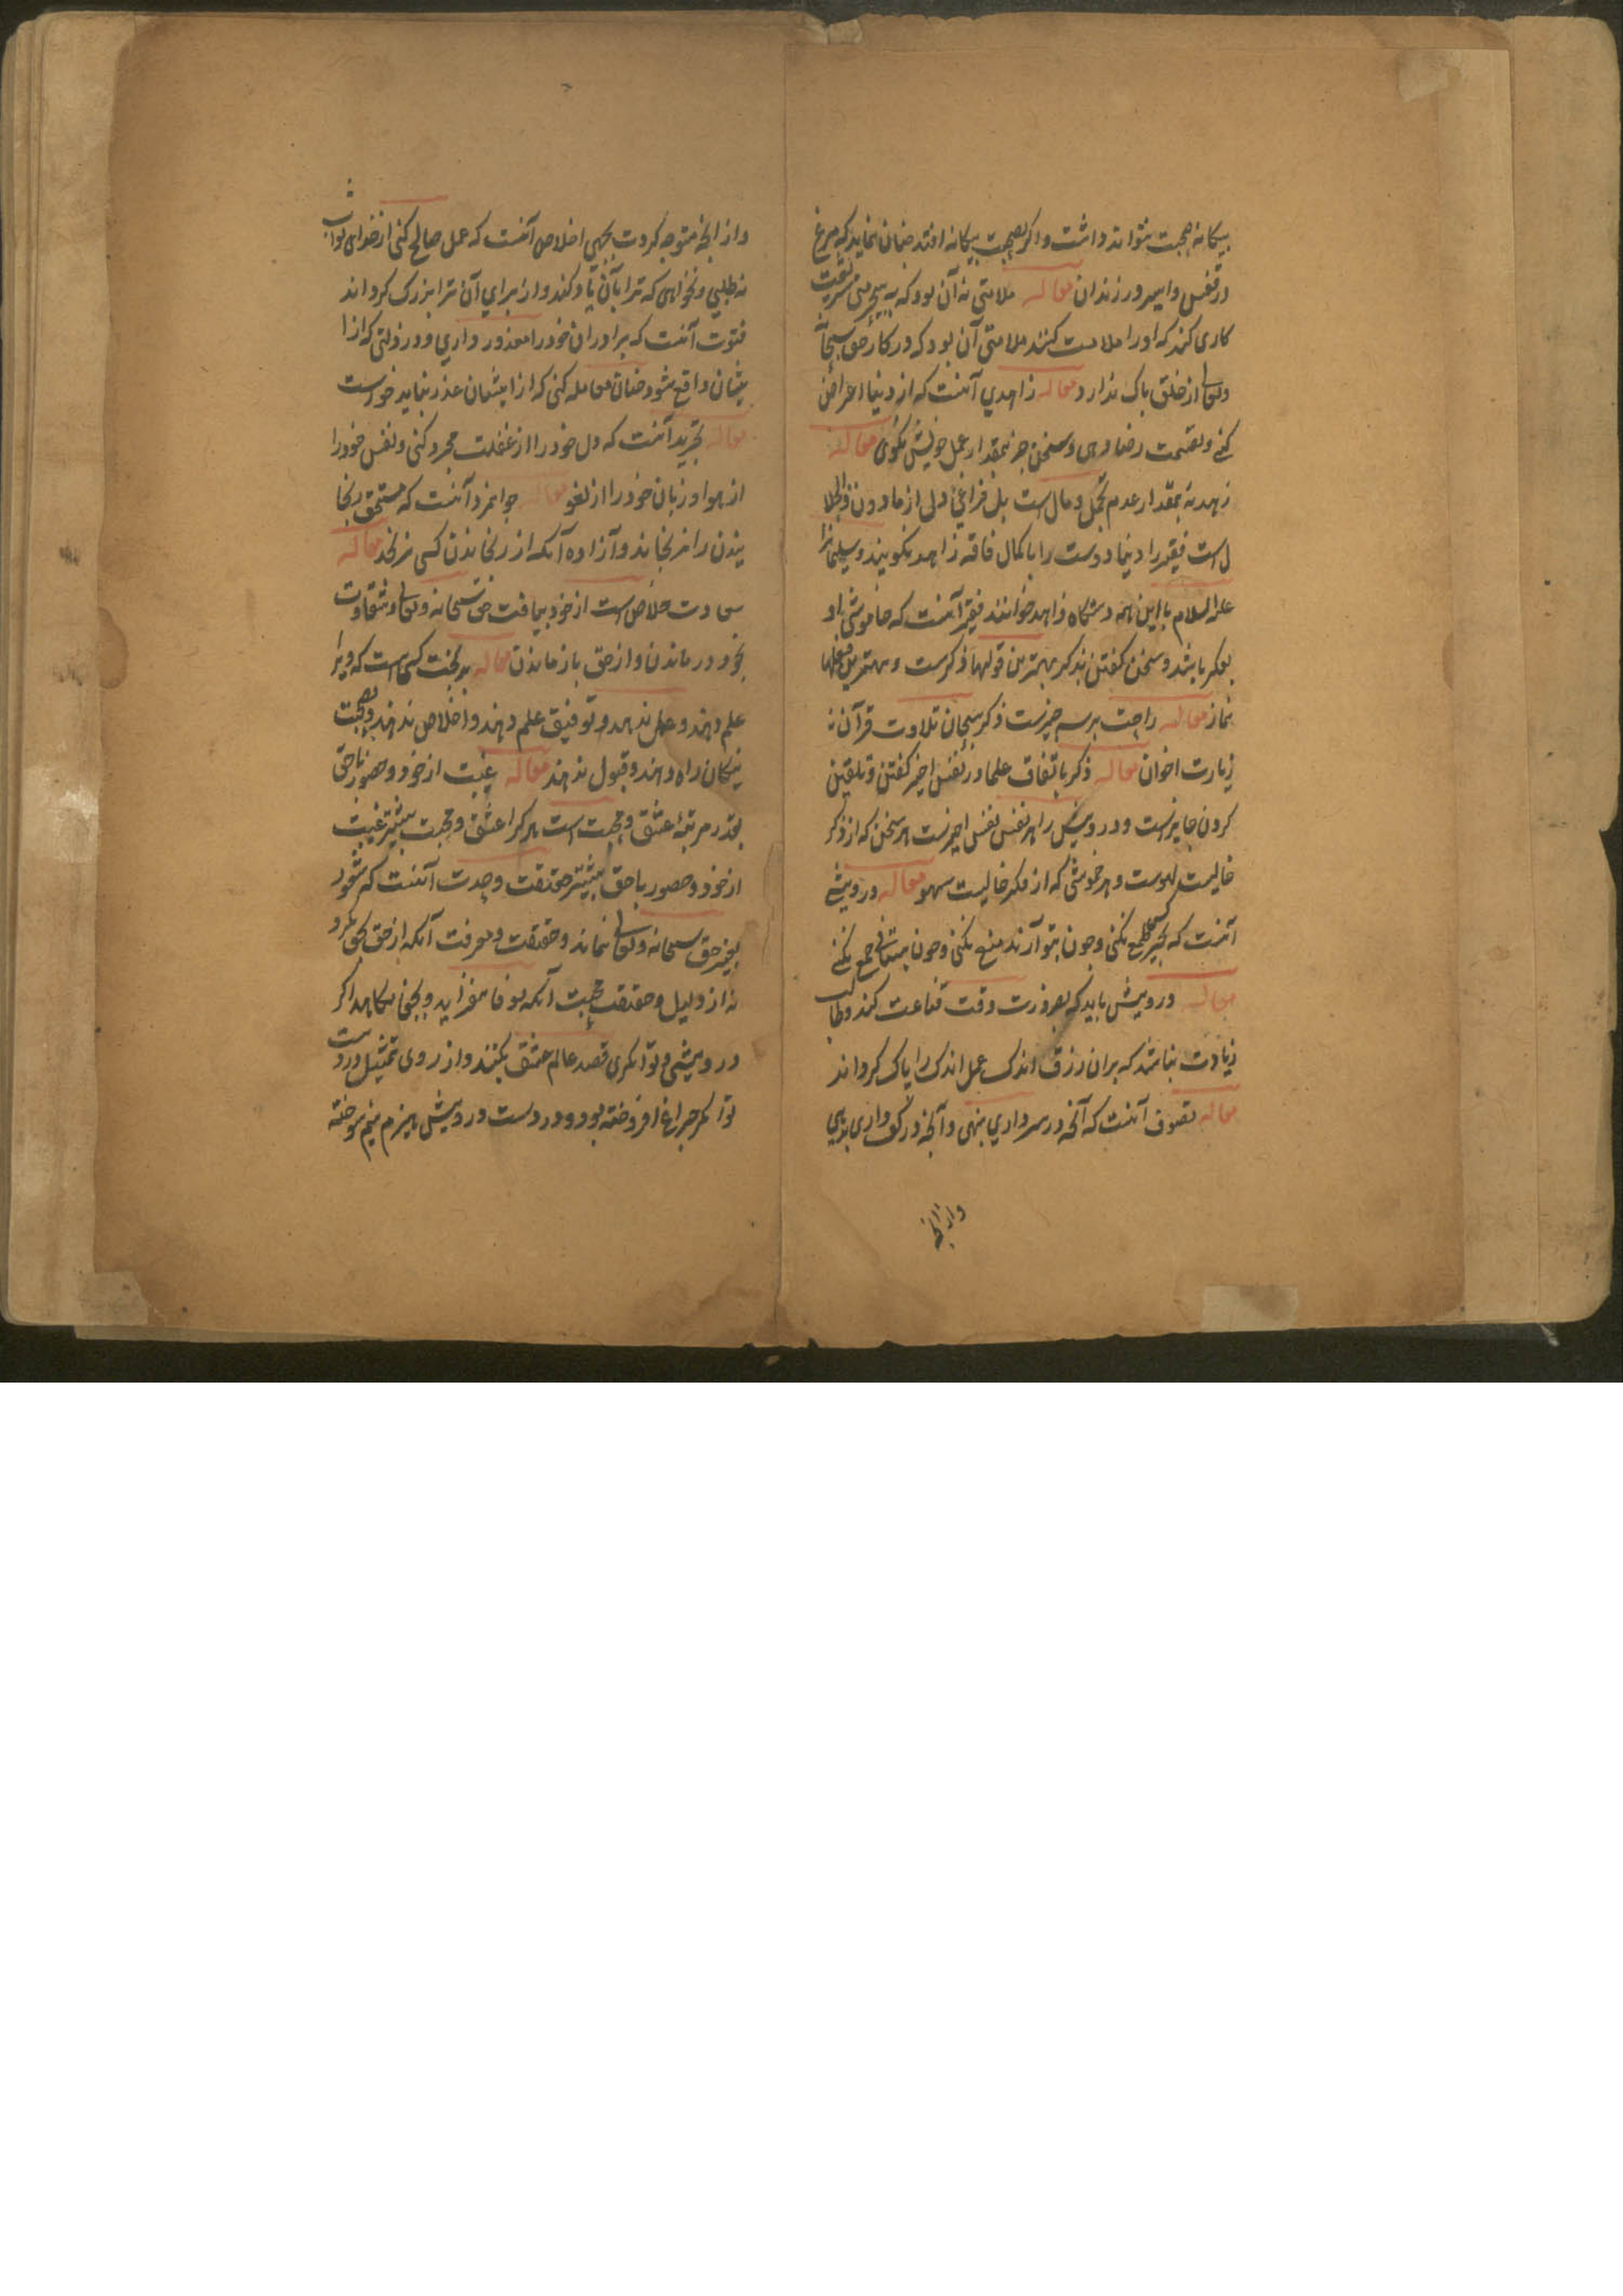 بیکانه صحبت نتواند داشت و اکر بصحبت بیکانه افتد چنان نماید که مرغ
در قفس و اسیر در زندان مقاله ملامتی نه آن بود که به بیحرمتی شریعت
کاری کند که او را ملامت کنند ملامتی آن بود که در کار حق سبحانه
و تعالی از خلق باک ندارد مقاله زاهدی آنست که از دنیا اعراض
کنی و بقسمت رضا دهی و سخن جز بمقدار عمل خویش نکوی مقاله
زهد نه بمقدار عدم تجمل و مال است بل فراغی دلی از مادون ذوالجلا
ل است فقیر را دنیا دوست را با کمال فاقه زاهد نکویند و سلیمانرا
علیه السلام با این همه دستکاه زاهد خوانند فقیر آنست که خاموشی او
بفکر باشد و سخن کفتن بذکر بهترین قولها ذکرست و بهترین فعلها
نماز مقاله راحت بر سه چیزست ذکر سبحان تلاوت قرآن
زیارت اخوان مقاله ذکر باتفاق علما در نفس اخیر کفتن و تلقین
کردن جایز است و درویش را هر نفس نفس اخیرست هر سخن که از ذکر
خالیست لهوست و هر خموشی که از فکر خالیست سهو مقاله درویشی
آنست که بچیز کسی طمع نکنی و چون بتو آرند منع نکنی و چون بستانی جمع نکنی
مقاله درویش باید که بضرورت وقت قناعت کند و طالب
زیادت نباشد که بر آن رزق اندک عمل اندک را پاک کرداند
مقاله تصوف آنست که آنچه در سر داری بنهی و آنچه در کف داری بدهی
وازانچه
و از انچه متوجه کردت نجهی اخلاص آنست که عمل صالح کنی از خدای ثواب
نه طلبی و نخواهی که ترا بآن یاد کنند و از برای آن ترا بزرک کردانند
فتوت آنست که برادران خود را معذور داری و در زلتی که از ا
یشان واقع شود چنان معامله کنی که از ایشان عذر نباید خواست
مقاله تجرید آنست که دل خود را از غفلت مجرد کنی و نفس خود را
از هوا و زبان خود را از لغو مقاله جوانمرد آنست که مستحق رنجا
نیدن را نرنجاند و آزاده آنکه از رنجاندن کسی نرنجد مقاله
سعادت خلاص است از خود بیافت حق سبحانه و تعالی و شقاوت
بخود درماندن و از حق باز ماندن مقاله بدبخت کسی است که ویرا
علم دهند و عمل ندهند و توفیق علم دهند و اخلاص ندهند و بصحبت
نیکان راه دهند و قبول ندهند مقاله غیبت از خود و حضور با حق
بقدر مرتبهٔ عشق و محبت است هر کرا عشق و محبت بیشتر غیبت
از خود و حضور با حق بیشتر حقیقت وحدت آنست که شعور
بغیر حق سبحانه و تعالی نماند و حقیقت معرفت آنکه از حق بحق نکرد
نه از دلیل و حقیقت محبت آنکه بوفا نفزاید و بجفا نکاهد اکر
درویشی و توانکری قصد عالم عشق بکنند و از روی تمثیل در دست
توانکر چراغ افروخته بود و در دست درویش هیزم نیم سوخته